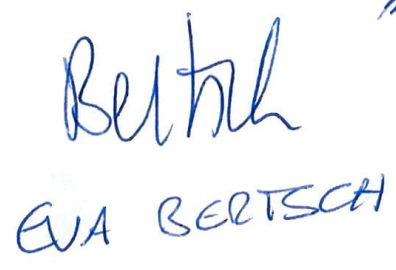 Bertsch
EVA BERTSCH